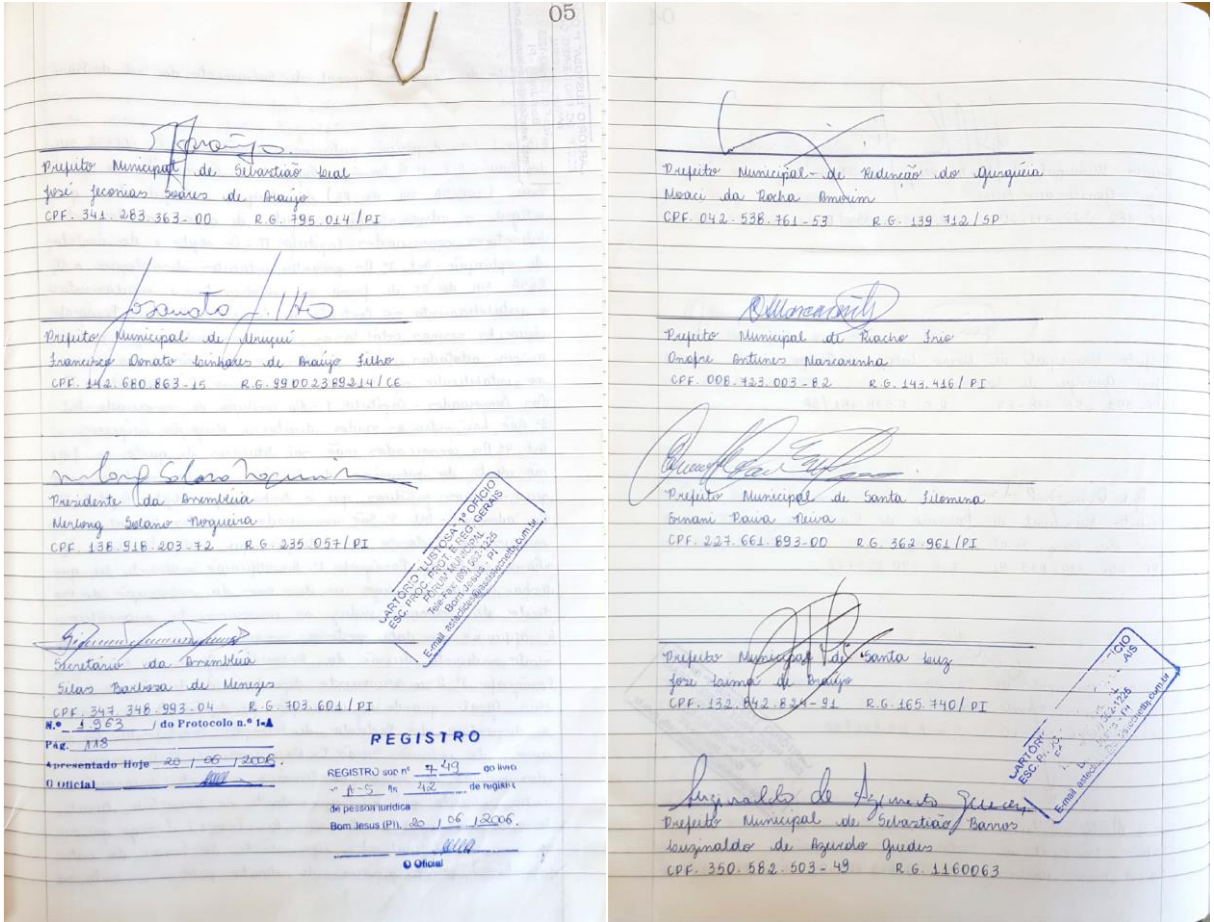 05
Prefeito Municipal de Sebastião Leal
José Jeconias Soares de Araújo
CPF. 341.283.363-00 R.G. 795.014/PI
Prefeito Municipal de Uruçuí
Francisco Donato Linhares de Araújo Filho
CPF. 142.680.863-15 R.G. 99002389214/CE
Presidente da Assembléia
Merlong Solano Nogueira
CPF. 138.918.203-72 R.G. 235.057/PI
CARTÓRIO LUSTOSA 1º OFÍCIO
ESC. PROC. PROT. E REG. GERAIS
FÓRUM MUNICIPAL
Tele-Fax: (89) 562-1225
Bom Jesus - PI
Secretário da Assembléia
Silas Barbosa de Menezes
CPF. 347.348.993-04 R.G. 703.601/PI
N.º 1963 / do Protocolo n.º 1-A
Pág. 118
Apresentado Hoje 20 / 06 / 2006.
O Oficial
REGISTRO
REGISTRO sob nº 749 do livro
nº A-5 fls 42 de registro
de pessoa jurídica
Bom Jesus (PI), 20 / 06 / 2006.
O Oficial
Prefeito Municipal de Redenção do Gurguéia
Moaci da Rocha Amorim
CPF. 042.538.761-53 R.G. 139 712/SP
Prefeito Municipal de Riacho Frio
Onofre Antunes Mascarenha
CPF. 008.723.003-82 R.G. 143.416/PI
Prefeito Municipal de Santa Filomena
Ernani Paiva Neiva
CPF. 227.661.893-00 R.G. 362.961/PI
Prefeito Municipal de Santa Luz
José Lima de Araújo
CPF. 132.842.824-91 R.G. 165.740/PI
Luzinaldo de Azevedo Guedes
Prefeito Municipal de Sebastião Barros
Luzinaldo de Azevedo Guedes
CPF. 350.582.503-49 R.G. 1160063